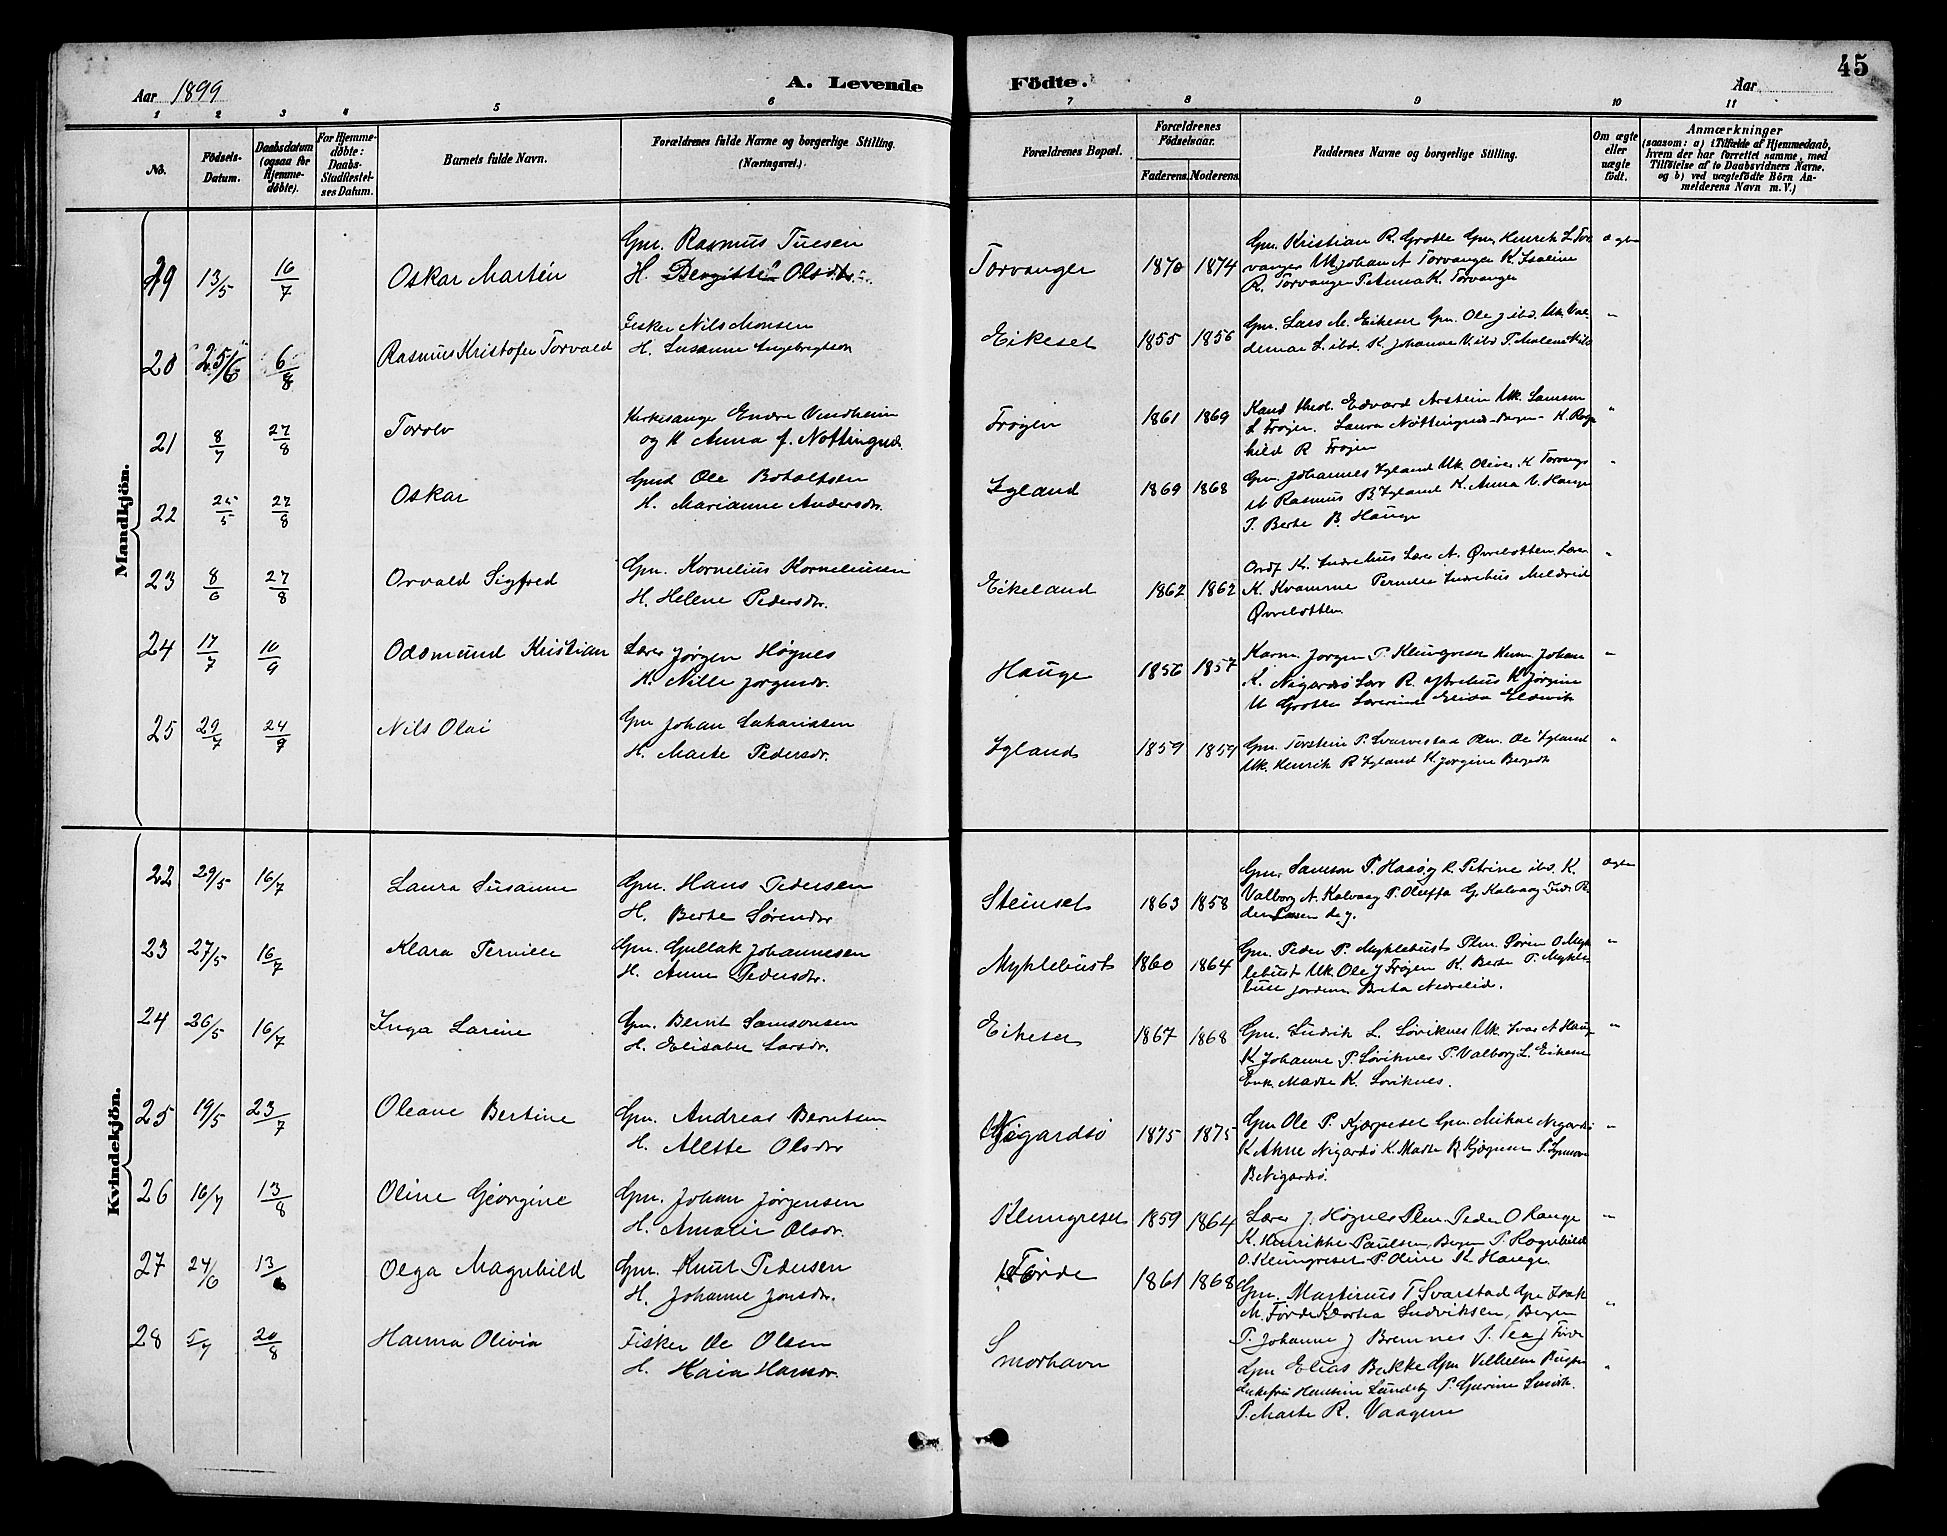 45
Aar 1899
A. Levende
Födte.
Aar
1 2 3 4 5 6 7 8 9 10 11
No.
Födsels-Datum.
Daabsdatum (ogsaa for Hjemme-döbte).
For Hjemme-döbte: Daabs-Stadfæstel-ses Datum.
Barnets fulde Navn.
Forældrenes fulde Navne og borgerlige Stilling.
(Næringsvei.)
Forældrenes Bopæl.
Forældrenes Födselsaar.
Faderens. Moderens.
Faddernes Navne og borgerlige Stilling.
Om ægte eller uægte födt.
Anmærkninger
(saasom: a) i Tilfælde af Hjemmedaab,
hvem der har forrettet samme, med
Tilföielse af to Daabsvidners Navne,
og b) ved uægtefödte Börn An-
melderens Navn m. V.)
Mandkjön.
19 13/5 16/7 Oskar Martén
Gm. Rasmus Tuesen
H. Bergitte Olsdtr.
Torvanger 1870 1874
Gm. Kristian R. Grotle Gm. Henrik L Tor
vanger Uk Johan A Torvanger K. Isaline
R. Torvanger P. Anna K. Torvanger
Ægte
20 25/6 6/8 Rasmus Kristofer Torvald
Fisker Nils Monsen
H. Susanne Engebregtsen
Eikeset 1855 1856
Gm. Lars M. Eikeset Gm. Ole J ibd. Uk. Val-
demar L. ibd. K. Johanne N. ibd P. Malene N ibd
"
21 8/7 27/8 Torolv
Kirkesanger Endre Vindheim
og H Anna f. Nottingnæs
Frøyen 1861 1869
Kand theol. Edvard Arstein Uk. Samson
L Frøyen. Laura Nøttingnæs Bergen K. Ragn
hild R Frøyen
"
22 25/5 27/8 Oskar
Gmd Ole Botolfsen
H. Marianne Andersdr.
Igland 1869 1868
Gm Johannes Igland Uk. Oliver K Torvang
U Rasmus B. Igland K. Anna A. Hauge
P. Berte B. Hauge
"
23 8/6 27/8 Orvald Sigfred
Gm. Kornelius Korneliusen
H. Helene Pedersdr.
Eikeland 1862 1862
Ordf K. Indrehus Lærer A. Øvrebotten Lærer
K. Kvamme Pernille Indrehus Meldrid
Øvrebotten
"
24 17/7 10/9 Oddmund Kristian
Lærer Jørgen Høgnes
H. Nille Jørgensdr.
Hauge 1856 1857
Kaarm. Jørgen P. Klungreset Kaarm. Johan
K. Nigardsö Lærer R. Ytrehus K Jørgine
U Grotle Lærerinde Erida Eldevik
"
25 29/7 24/9 Nils Olai
Gm Johan Sakariassen
H. Marte Pedersdr.
Igland 1859 1859
Gm. Torstein P. Svarvestad Plm. Ole Igland
Uk. Henrik R Igland K Jørgine Bergset
"
Kvindekjön.
22 29/5 16/7 Laura Susanne
Gm. Hans Pedersen
H. Berte Sørensdr
Steinset 1863 1858
Gm. Samson P. Haasøy K. Petrine ibd. K.
Valborg A. Kalvaag P. Oleffa G. Kalvaag
Ægte
23 27/5 16/7 Klara Pernille
Gm. Gullak Johannesen
H. Anne Pedersdr.
Myklebust 1860 1864
Gm. Peder P. Myklebust Plm. Søren O Myk
lebust Uk. Ole J Frøyen K. Berte P. Mykle-
bust Jordem. Brita Nedrelid.
"
24 26/5 16/7 Inga Larine
Gm. Bernt Samsonsen
H. Elisabet Larsdr.
Eikeset 1867 1868
Gm. Ludvik L. Løviknes Uk. Ivar A Haug
K. Johanne P. Løviknes P. Valborg L. Eikeset
Enk. Marte K. Løviknes.
"
25 19/5 23/7 Oleane Bertine
Gm. Andreas Berntsen
H. Alette Olsdtr
Nigardsö 1875 1875
Gm Ole P. Kjørpeset Gm. Mikal Nigardsö
K Anne Nigardsö K. Marte R Kjørpeset
B. Nigardsö.
"
26 16/7 13/8 Oline Georgine
Gm. Johan Jørgensen
H. Amalie Olsdr.
Klungreset 1859 1864
Lærer J. Høgnes Plm. Peder O Hauge
K. Henrikke Paulsen, Bergen P. Ragnhild
O. Klungreset P. Oline K. Hauge.
"
27 24/6 13/8 Olga Magnhild
Gm. Knut Pedersen
H. Johanne Jonsdr.
Förde 1861 1868
Gm. Martinus T Svarstad Gm Isak
M. Førde K Dortea Ludviksen, Bergen
P. Johanne J Bremnes P. Tea J Førde
"
28 5/7 20/8 Hanna Olivia
Fisker Ole Olsen
H. Kaia Hansdr.
Smorhavn
Gm Elias Bakke Gm Vilhelm
Hansine Lundeby P. Gurine
P. Marte R. Vaagene
"